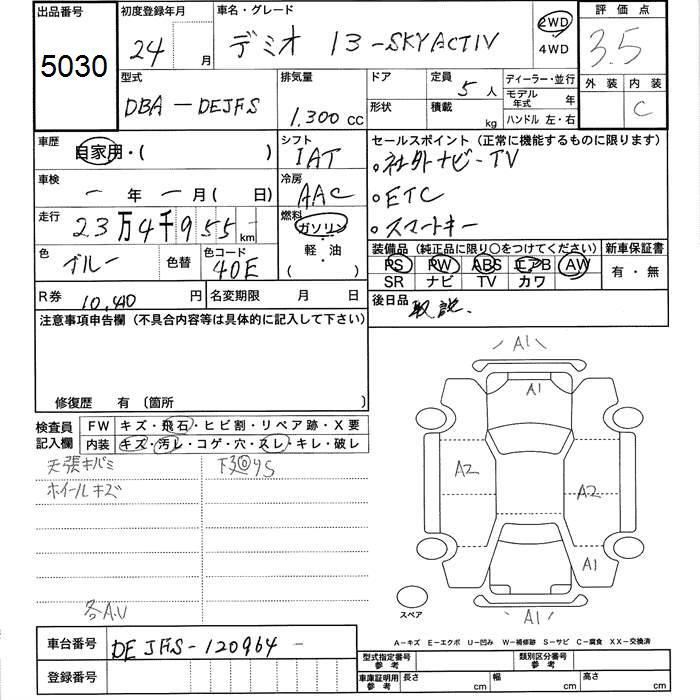 出品番号
5030
初度登録年月
24 月
車名・グレード
デミオ 13-SKYACTIV
2WD
4WD
評価点
3.5
外装 内装
C
型式
DBA-DEJFS
排気量
1,300 CC
ドア
形状
定員 5 人
積載 kg
ディーラー・並行
モデル年式 年
ハンドル 左・右
車歴
自家用・( )
シフト
IAT
セールスポイント(正常に機能するものに限ります)
・社外ナビ-TV
・ETC
・スマートキー
車検
- 年 - 月( 日)
冷房
AAC
走行
23万4千955km
燃料
ガソリン
・
軽・油
( )
色
ブルー
色替
色コード
40E
装備品(純正品に限り〇をつけてください)
PS PW ABS エアB AW
SR ナビ TV カワ
新車保証書
有・無
R券 10,410 円
名変期限 月 日
後日品
取説.
注意事項申告欄(不具合内容等は具体的に記入して下さい)
修復歴 有(箇所
検査員
記入欄
FW キズ・飛石・ヒビ割・リペア跡・X要
内装 キズ・汚レ・コゲ・穴・スレ・キレ・破レ
天張キバミ
ホイールキズ
各A.U
A1
A1
A2
A2
A1
A1
スペア
A-キズ E-エクボ U-凹み W-補修跡 S-サビ C-腐食 XX-交換済
車台番号
DEJFS-120964-
登録番号
型式指定番号
参考
類別区分番号
参考
車庫証明用
参考
長さ cm
幅 cm
高さ cm